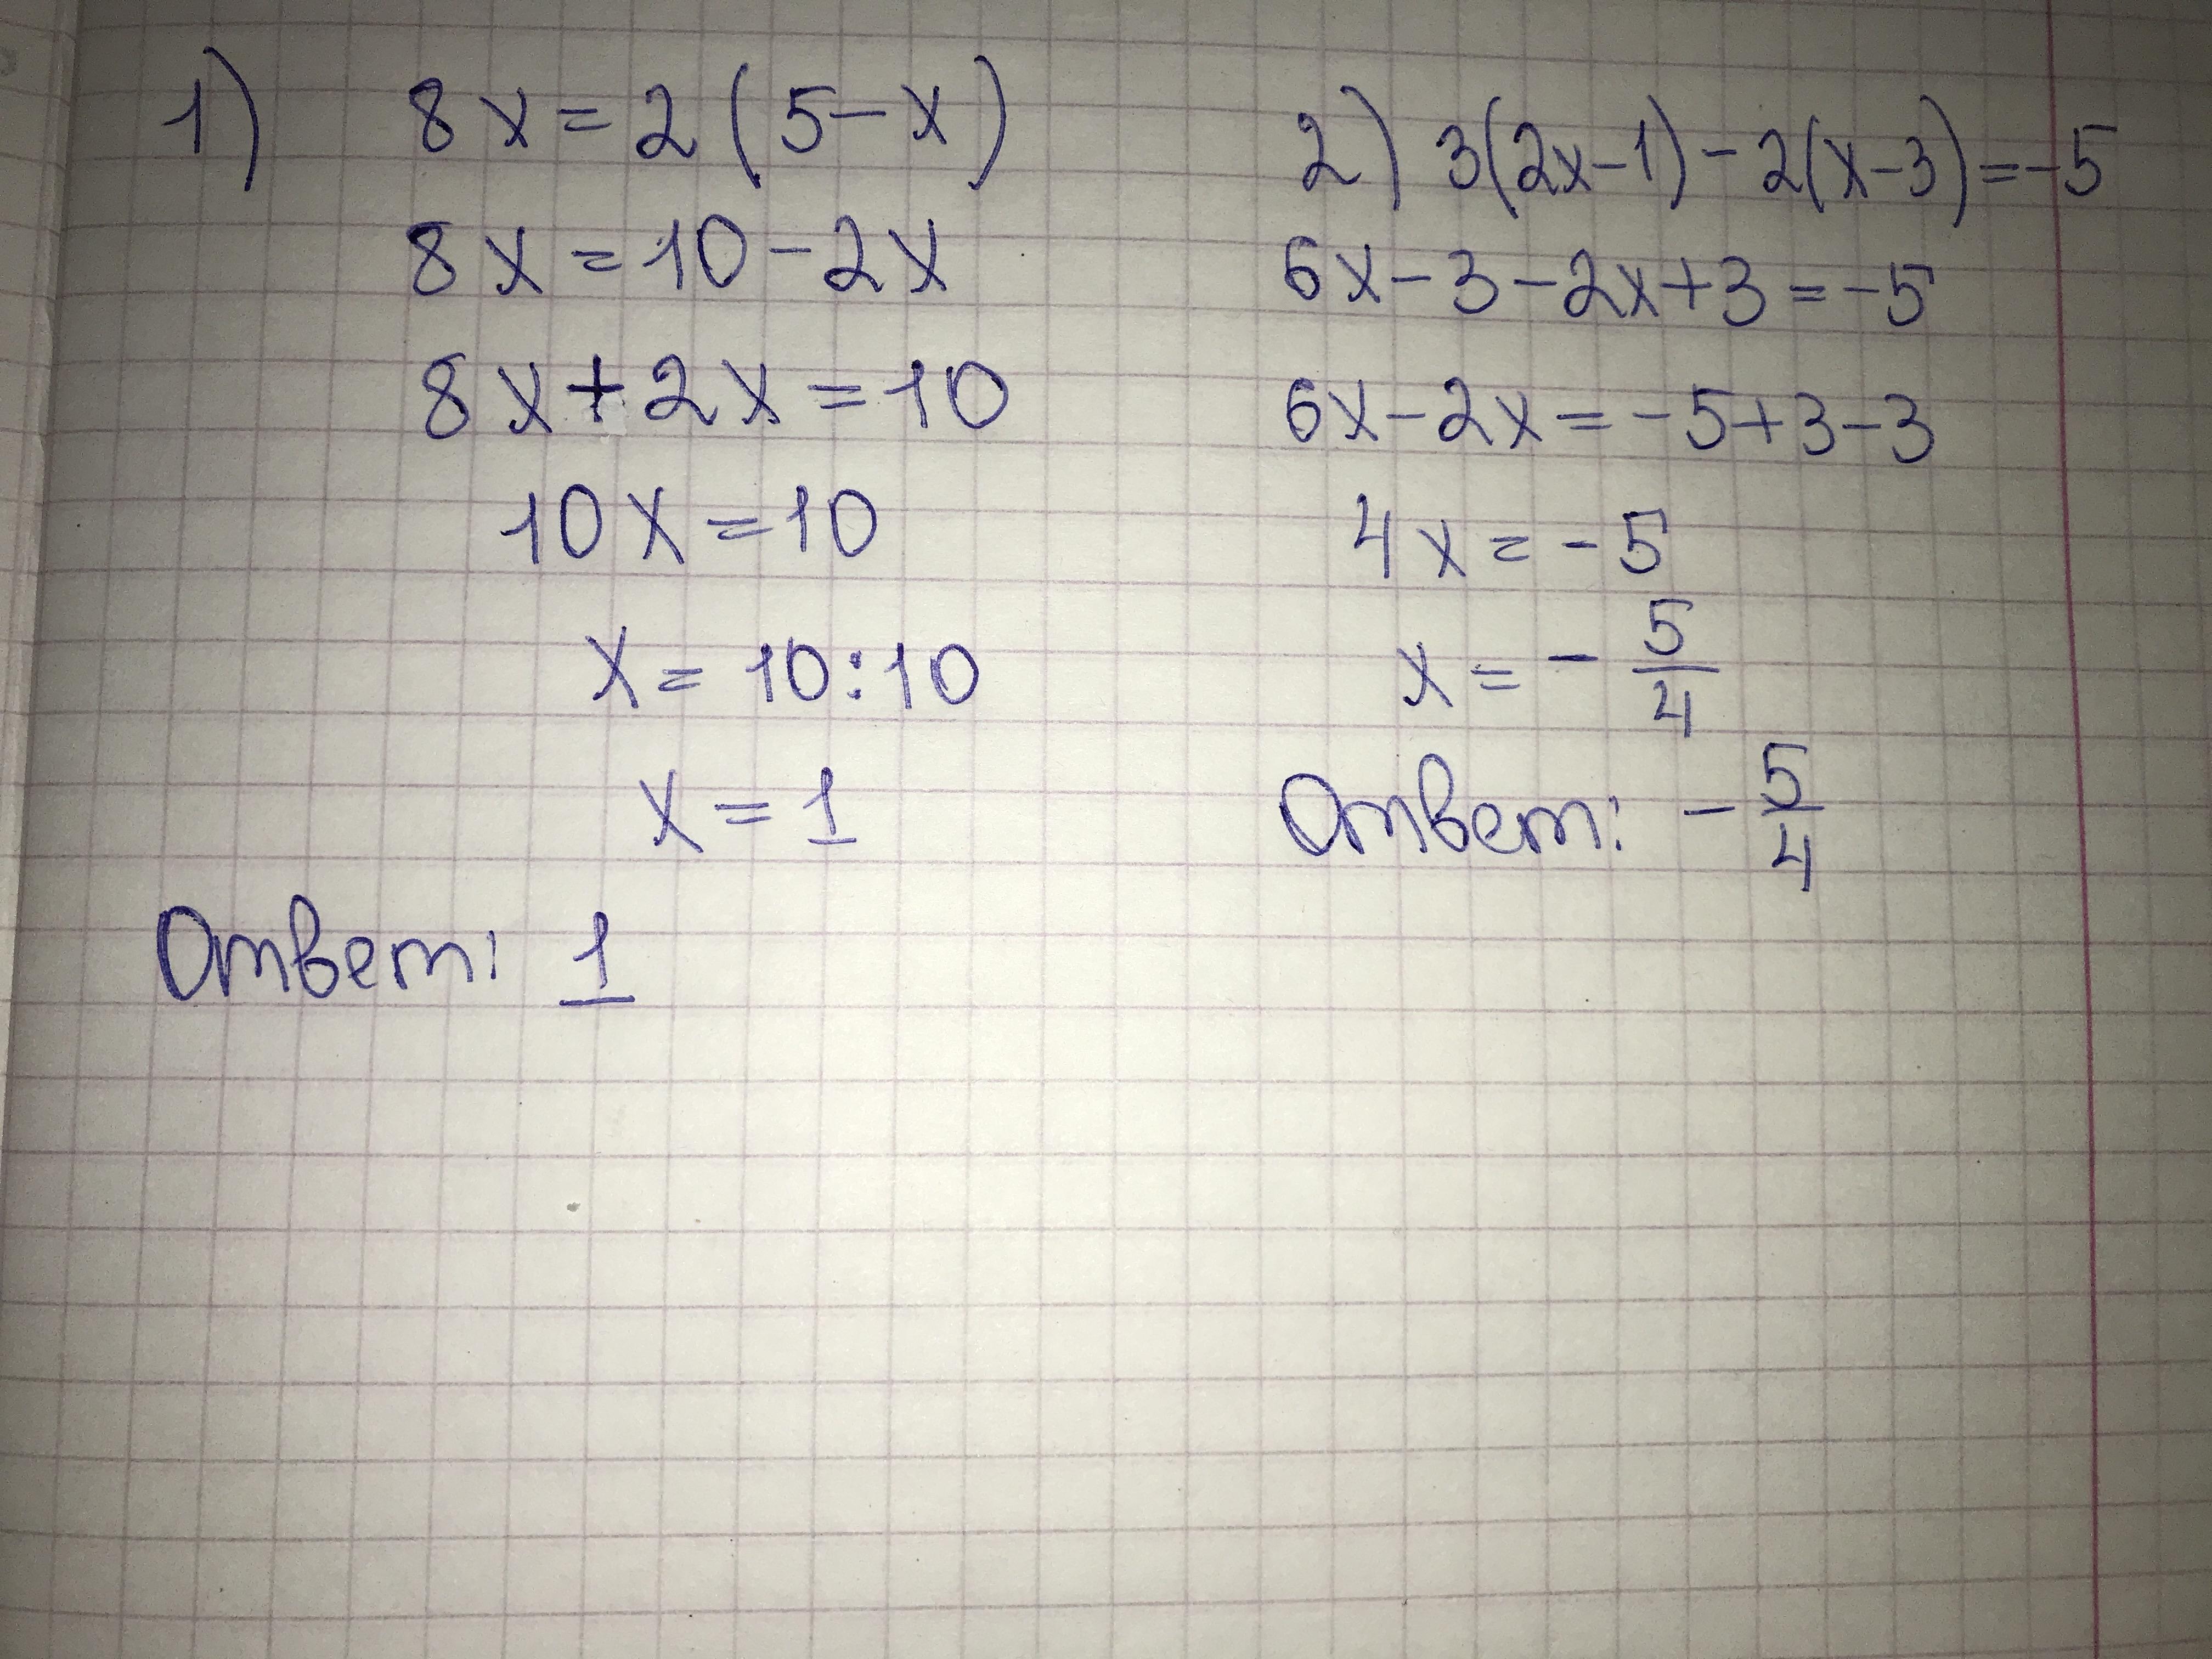 1) 8x=2(5-x)
8x=10-2x
8x+2x=10
10x=10
x=10:10
x=1
Ответ: 1
2) 3(2x-1)-2(x-3)=-5
6x-3-2x+3=-5
6x-2x=-5+3-3
4x=-5
x=-5/4
Ответ: -5/4